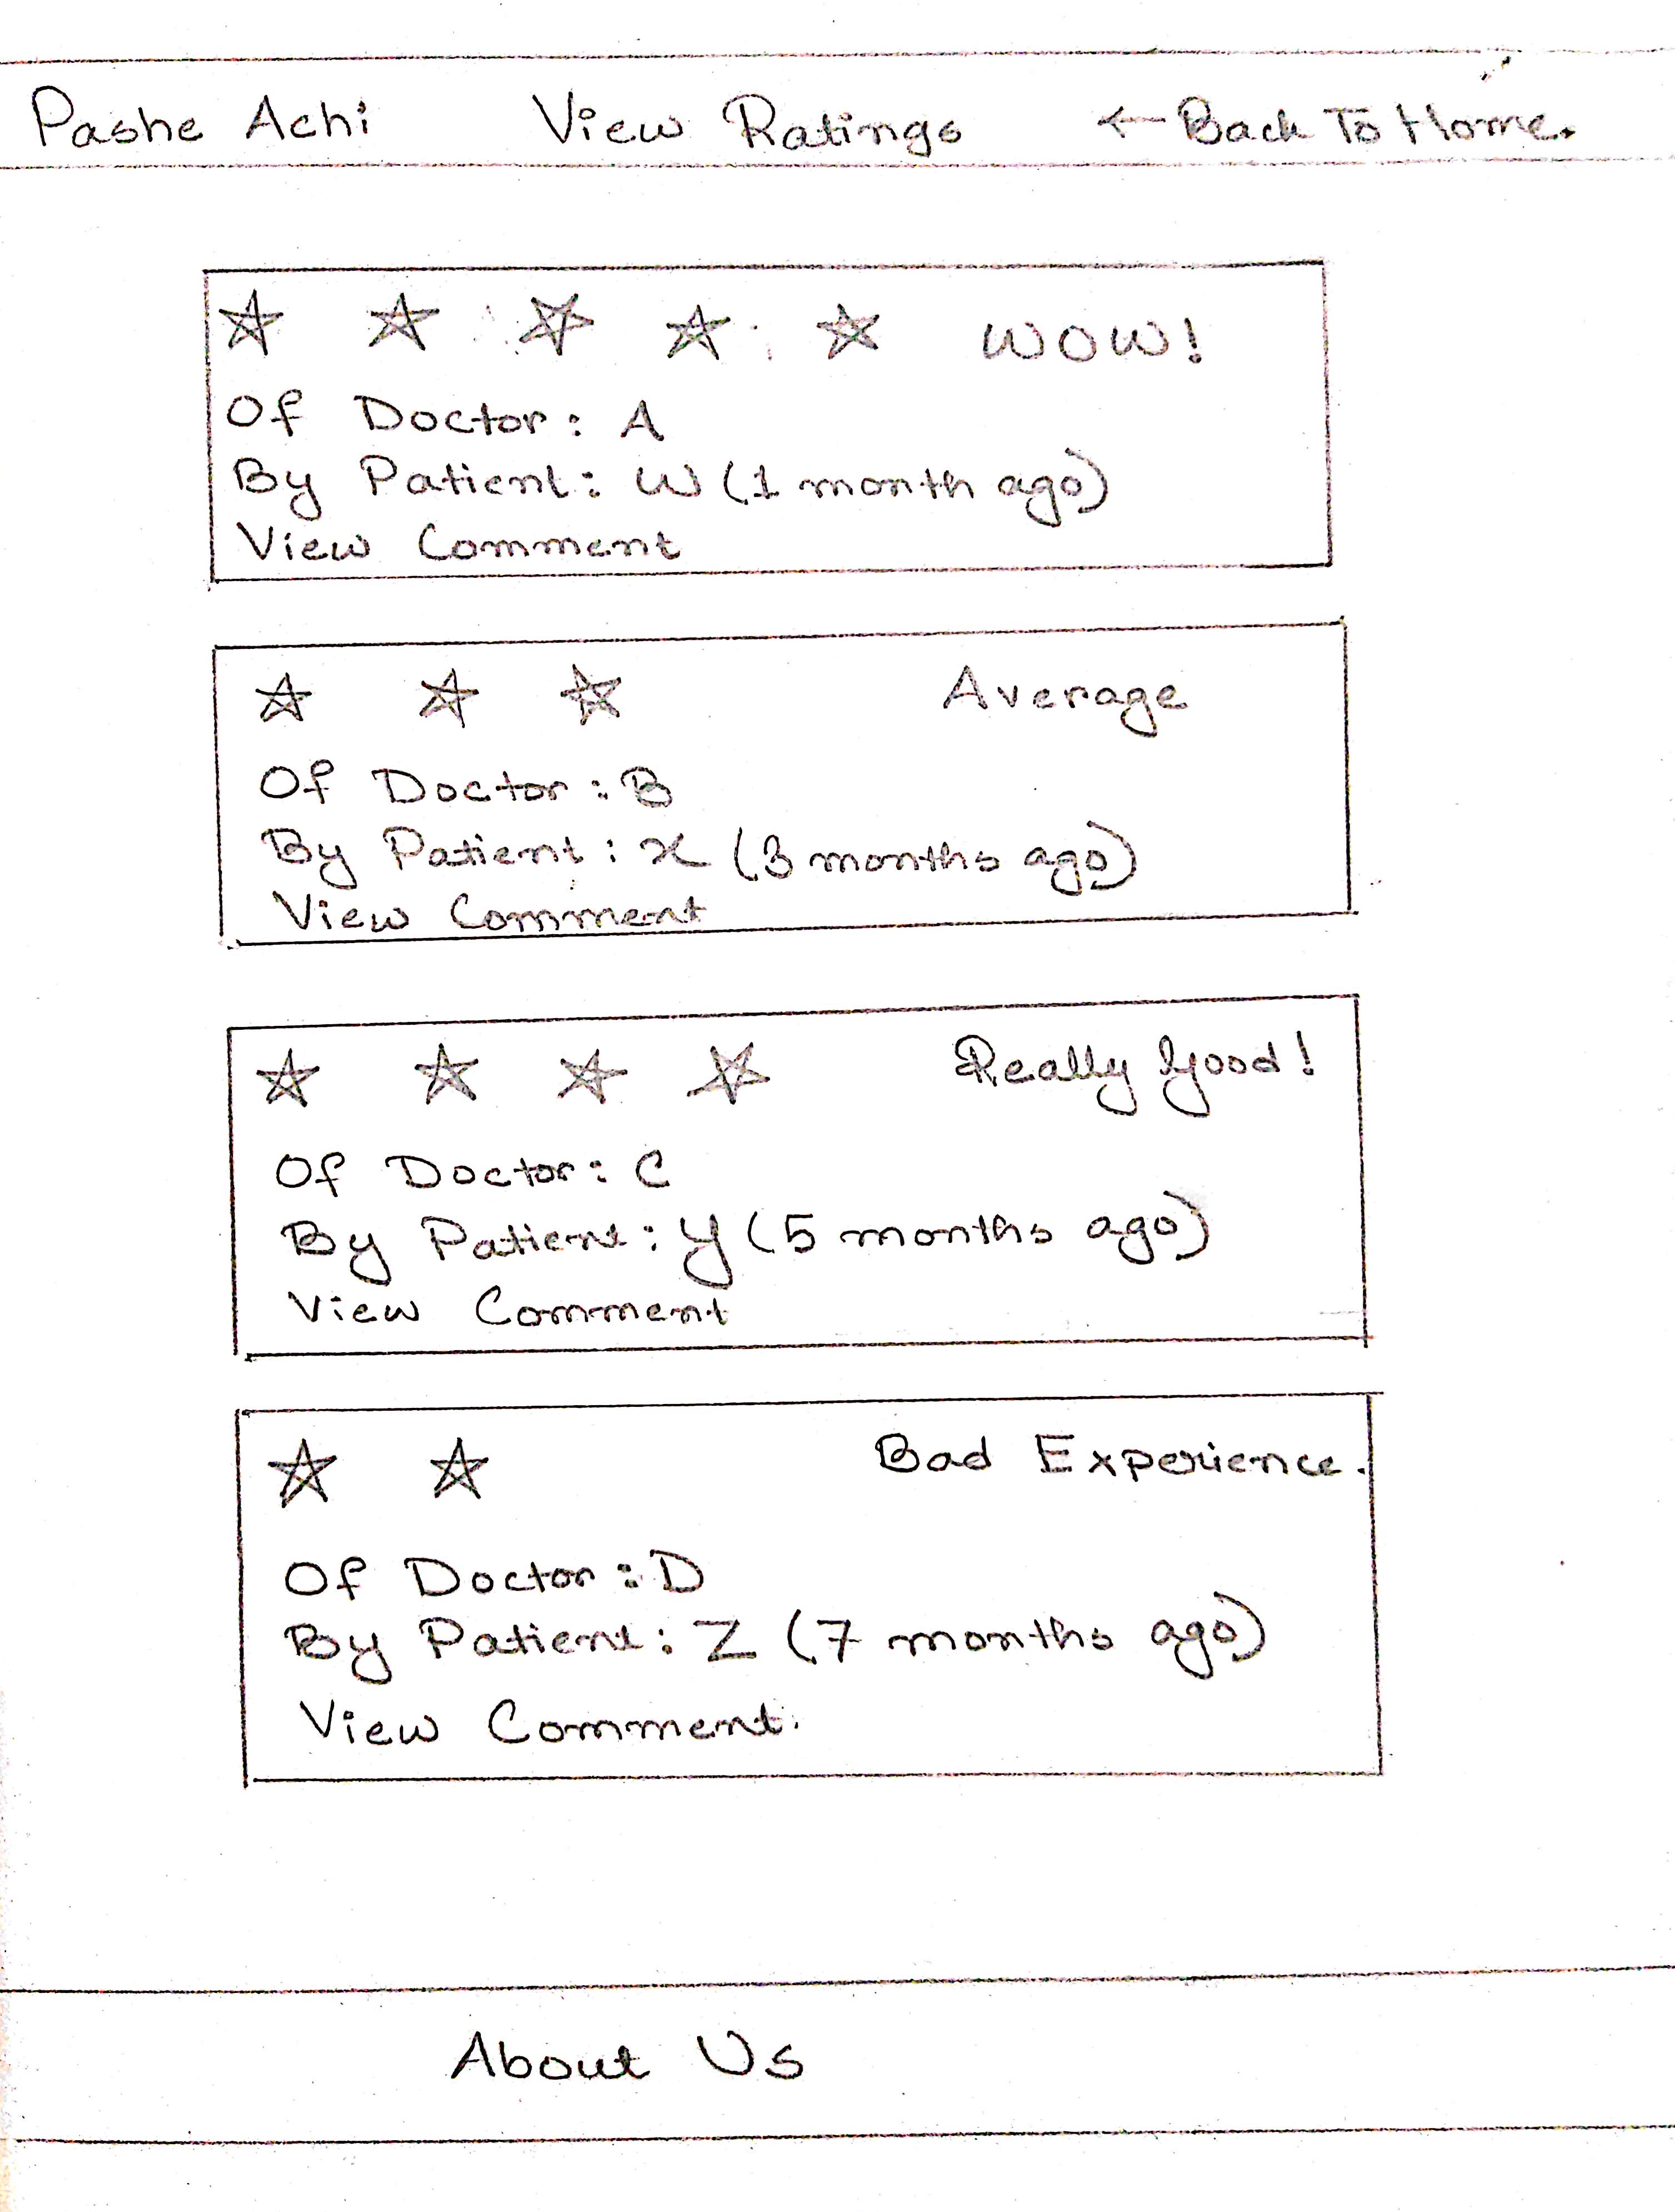 Pashe Achi View Ratings ← Back To Home.
WOW!
Of Doctor: A
By Patient: W (1 month ago)
View Comment
Average
Of Doctor: B
By Patient: X (3 months ago)
View Comment
Really Good!
Of Doctor: C
By Patient: Y (5 months ago)
View Comment
Bad Experience.
Of Doctor: D
By Patient: Z (7 months ago)
View Comment.
About Us